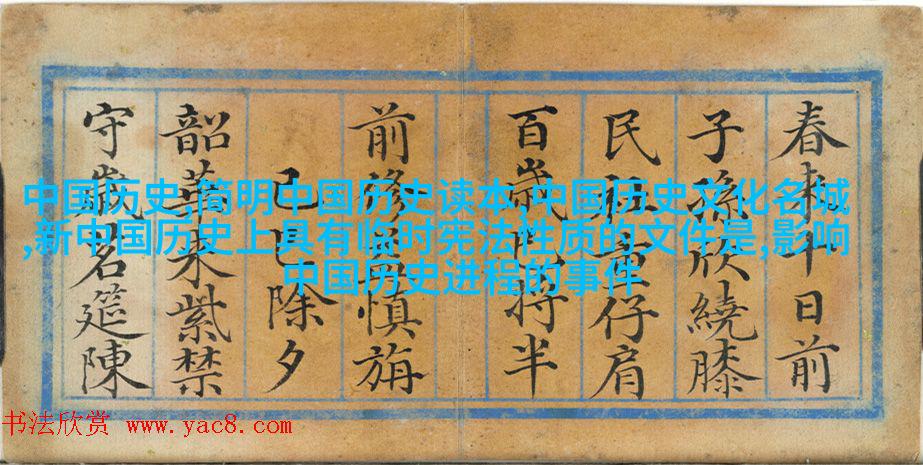 春来十日前
子孫欣繞膝
民社重仔肩
百歲将半
前修益慎旃
己巳除夕
韶華来紫禁
守歲名筵陳
中国历史,简明中国历史读本,中国历史文化名城
,新中国历史上具有临时宪法性质的文件是,影响
中国历史进程的事件
书法欣赏 www.yac8.com